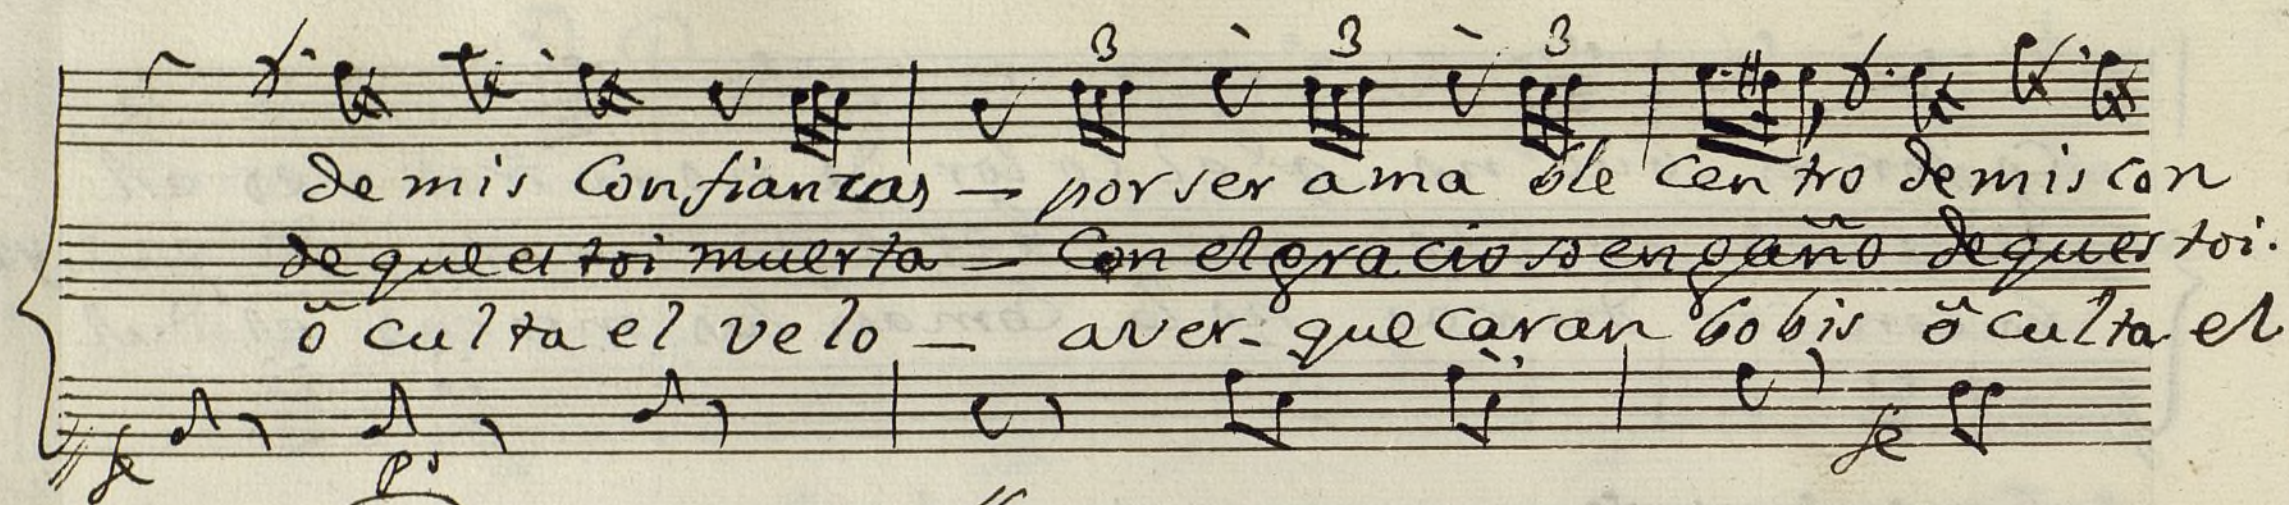 3 3 3
de mis Confianzas — por ser ama ble centro de mis con
de que estoi muerta — Con el gracioso engaño deques toi.
ô culta el velo — aver - que caran bobis ô culta el
fe p.º fe